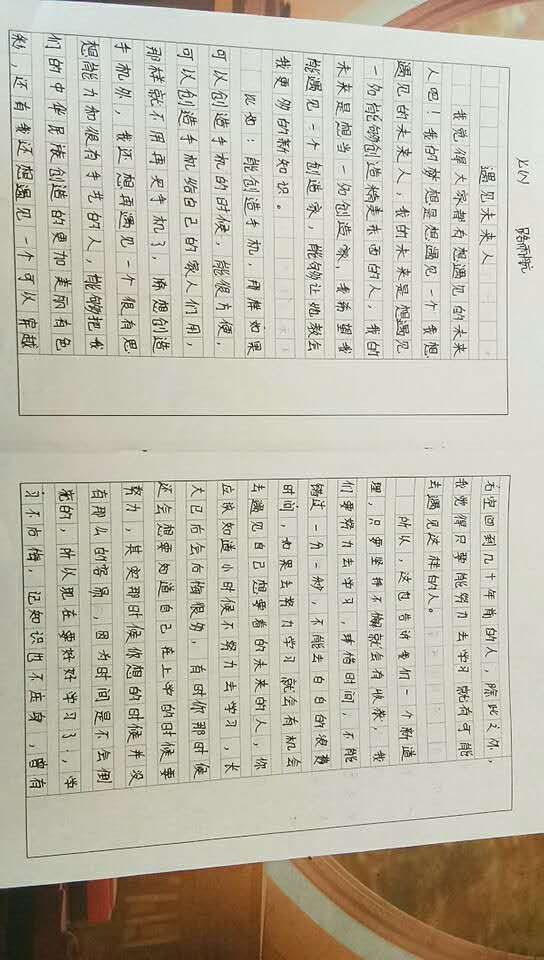 遇见未来人
我觉得大家都有想遇见的未来
人吧！我的梦想是想遇见一个我想
遇见的未来人，我的未来是想遇见
一名能够创造精美东西的人，我的
未来是想当一名创造家，我希望我
能遇见一个创造家，能够让她教会
我更多的新知识。
比如：能创造手机，如果
可以创造手机的时候，能很方便，
可以创造手机给自己的家人们用，
那样就不用再买手机了，除想创造
手机外，我还想再遇见一个很有思
想能力和很有手艺的人，能够把我
们的中华民族创造的更加美丽有色
彩，还有我还想遇见一个可以穿越
时空回到几十年前的人，除此之外，
我觉得只要能努力去学习就有可能
去遇见这样的人。
所以，这也告诉我们一个新道
理，只要坚持不懈就会有收获，我
们要努力去学习，珍惜时间，不能
错过一分一秒，不能去白白的浪费
时间，如果去努力学习就会有机会
去遇见自己想要看的未来的人，你
应该知道小时候不努力去学习，长
大已后会后悔很多，有时你那时候
还会想要知道自己在上学的时候要
努力，其实那时候你想的时候并没
有那么的容易，因为时间是不会倒
流的，所以现在要好好学习了，学
习不后悔，记知识也不压身，曾有